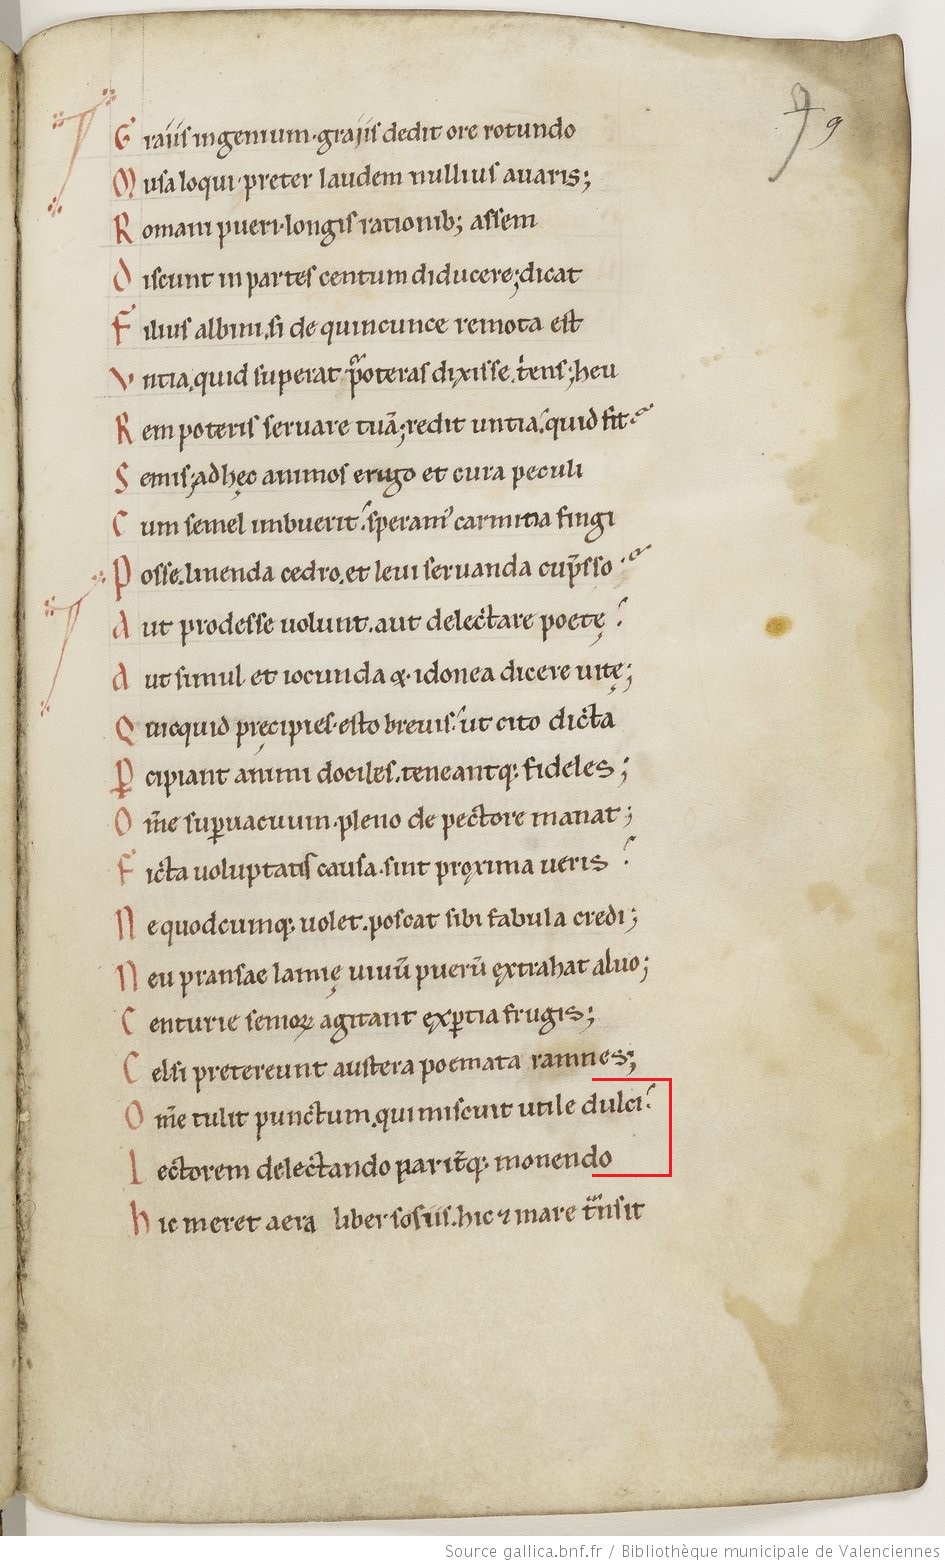 9 9
Graiis ingenium·graiis dedit ore rotundo
Musa loqui·preter laudem nullius avaris;
Romani pueri·longis rationib; assem
Discunt in partes centum diducere;dicat
Filius albini.si de quincunce remota est
Untia,quid superat p̃oteras dixisse.t̓ens;heu
Rem poteris seruare tuā;redit untia.quid fit.
Semis;ad hęc animos erugo et cura peculi
Cum semel imbuerit.speram᾿ carmina fingi
Posse.linenda cedro.et leui seruanda cup̄sso
Aut prodesse uolunt.aut delectare poetę
Aut simul et iocunda & idonea dicere uitę;
Quicquid pręcipies·esto brevis·ut cito dicta
Ꝑcipiant animi dociles.teneantq; fideles;
Om̄e suꝑuacuum·pleno de pectore manat;
Ficta uoluptatis causa·sint proxima ueris
Ne quodcumq; uolet.poscat sibi fabula credi;
Neu pransae lamię uiuū puerū extrahat aluo;
Centurie senioꝝ agitant exꝑtia frugis;
Celsi pretereunt austera poemata ramnes;
Om̄e tulit punctum,qui miscuit utile dulci
Lectorem delectando parit̄q; monendo
hic meret aera liber sosiis.hic & mare t̃nsit
Source gallica.bnf.fr / Bibliothèque municipale de Valenciennes